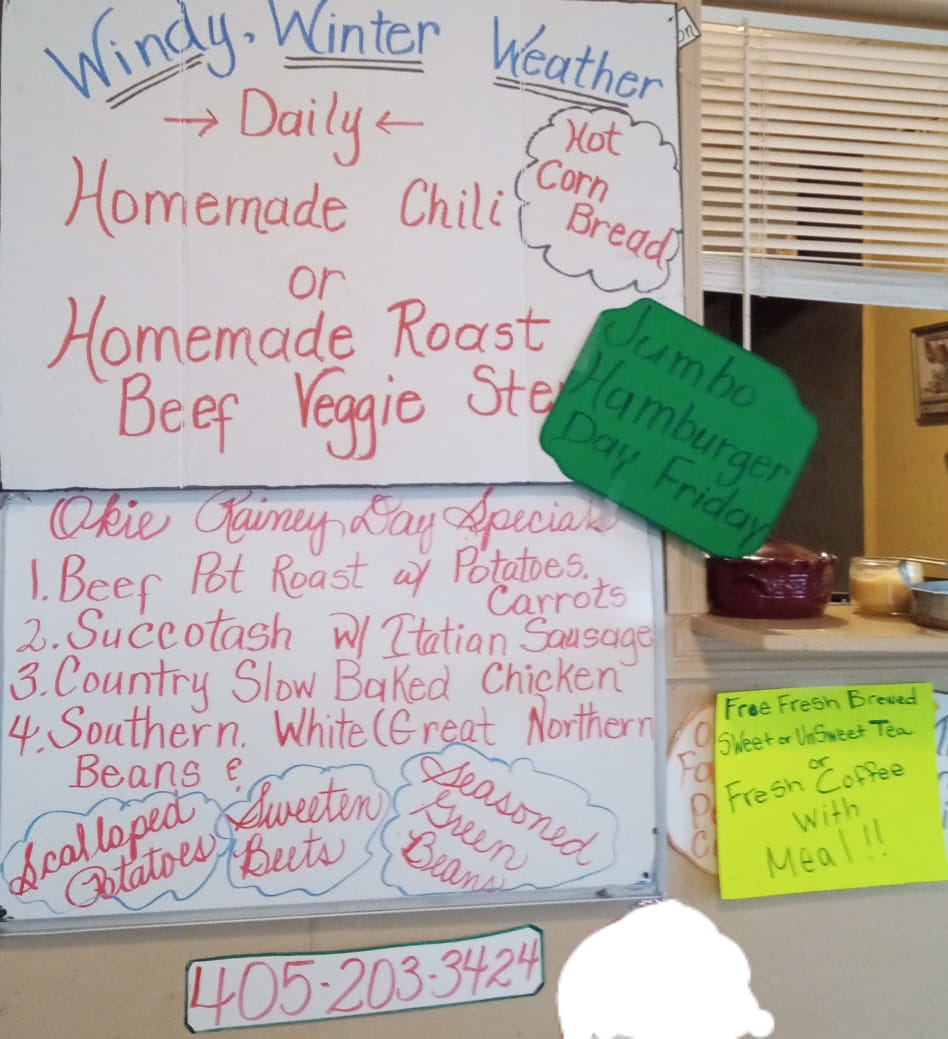 Windy, Winter Weather
→ Daily ←
Homemade Chili
or
Homemade Roast
Beef Veggie Ste
Hot
Corn
Bread
on
Jumbo
Hamburger
Day Friday
Okie Rainey Day Specials
1. Beef Pot Roast w/ Potatoes.
Carrots
2. Succotash W/ Itatian Sausage
3. Country Slow Baked Chicken
4. Southern. White (Great Northern
Beans &
Scalloped
Potatoes
Sweeten
Beets
Seasoned
Green
Beans
Free Fresh Brewed
Sweet or UnSweet Tea
or
Fresh Coffee
With
Meal!!
405-203-3424